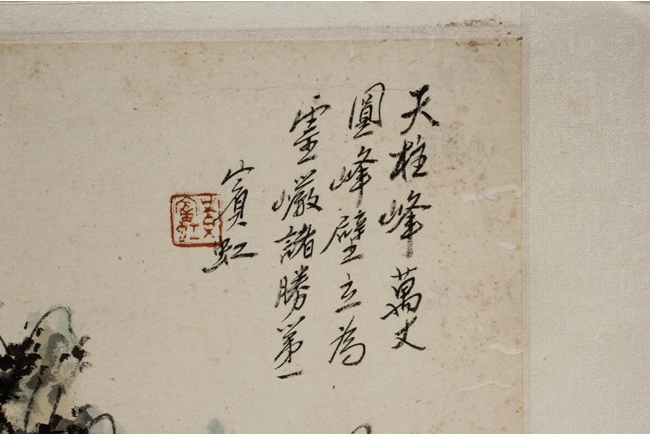 天柱峰萬丈
圓峰壁立為
靈巖諸勝第一
賓虹
黃賓虹